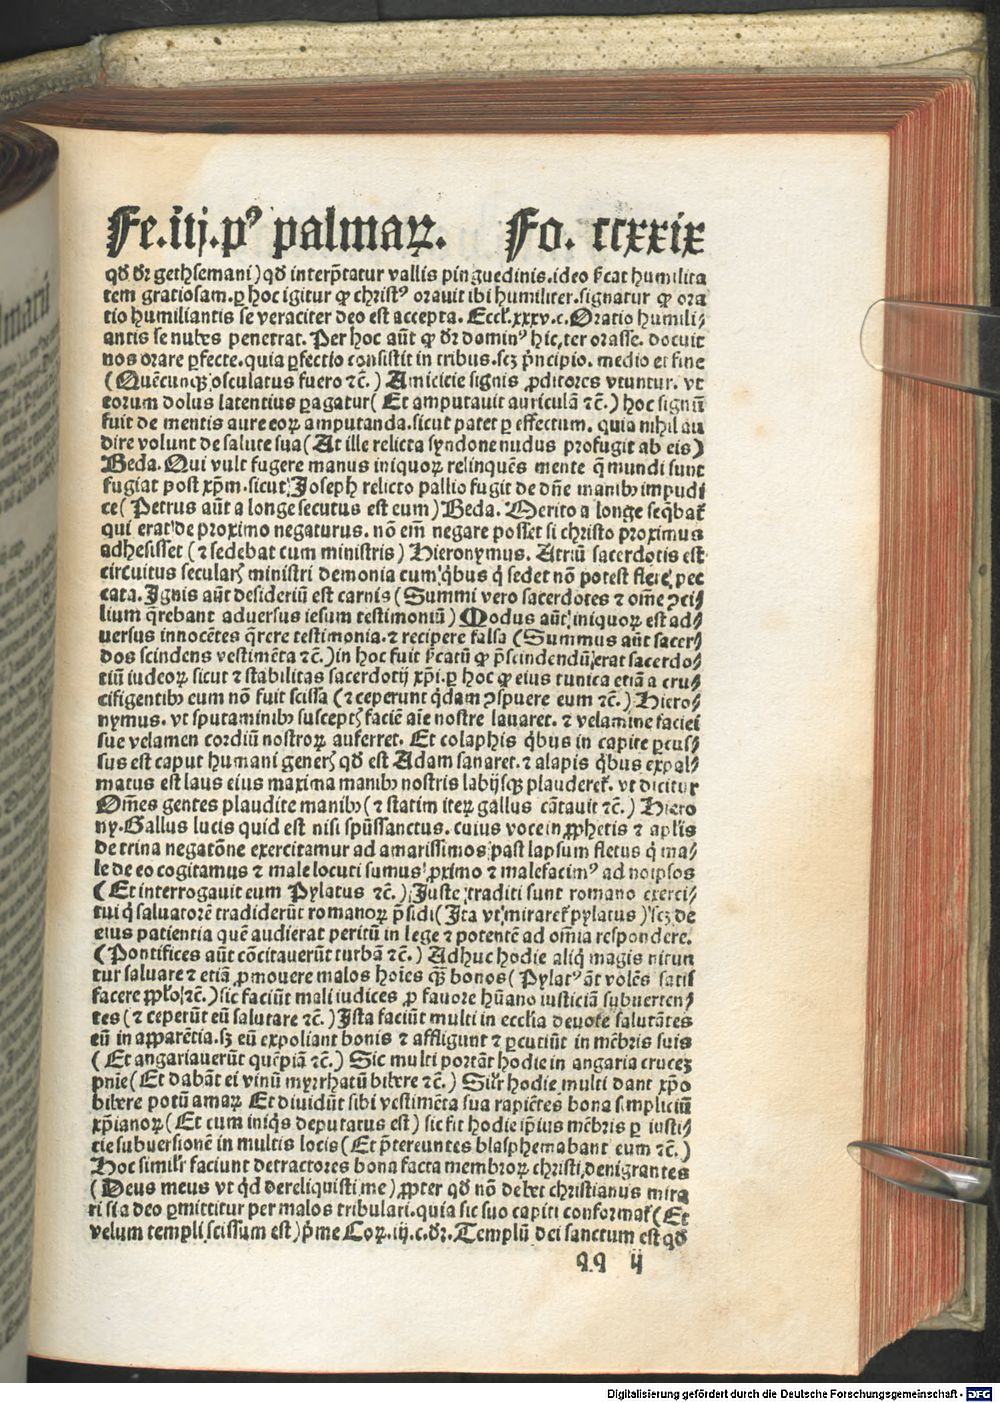 Fe.iij.pꝰ palmaꝝ. Fo. ccxxix
qd dr gethsemani) qd interp̄tatur vallis pinguedinis.ideo s̄icat humilita
tem gratiosam.ꝑ hoc igitur ꝙ christꝰ orauit ibi humiliter.signatur ꝙ ora
tio humiliantis se veraciter deo est accepta. Eccl'.xxxv.c.Oratio humili⸗
antis se nubes penetrat. Per hoc aūt ꝙ dr dominꝰ hic,ter orasse. docuit
nos orare ꝑfecte.quia ꝑfectio consistit in tribus.scꝫ p̄ncipio. medio et fine
(Quēcunqꝫ osculatus fuero ⁊c̄.) Amicicie signis ꝓditores vtuntur. vt
eorum dolus latentius ꝑagatur( Et amputauit auriculā ⁊c̄.) hoc signū
fuit de mentis aure eoꝝ amputanda.sicut patet ꝑ effectum. quia nihil au
dire volunt de salute sua(At ille relicta syndone nudus profugit ab eis)
Beda. Qui vult fugere manus iniquoꝝ relinquēs mente q̄ mundi sunt
fugiat post xp̄m.sicut Joseph relicto pallio fugit de dn̄e manibꝫ impudi
ce( Petrus aūt a longe secutus est eum) Beda. Merito a longe seq̄bat᷑
qui erat de proximo negaturus. nō em̄ negare posset si christo proximus
adhesisset (⁊ sedebat cum ministris) Hieronymus. Atriū sacerdotis est
circuitus secularꝭ ministri demonia cum q̇bus q̇ sedet nō potest flere pec
cata. Ignis aūt desideriū est carnis (Summi vero sacerdotes ⁊ om̄e ꝯci⸗
lium q̄rebant aduersus iesum testimoniū) Modus aūt iniquoꝝ est ad⸗
uersus innocētes q̄rere testimonia.⁊ recipere falsa (Summus aūt sacer⸗
dos scindens vestimēta ⁊c̄.)in hoc fuit s̄icatū ꝙ p̄scindendū erat sacerdo⸗
tiū iudeoꝝ sicut ⁊ stabilitas sacerdotij xp̄i.ꝑ hoc ꝙ eius tunica etiā a cru⸗
cifigentibꝫ eum nō fuit scissa (⁊ ceperunt q̇dam ꝯspuere eum ⁊c̄.) Hiero⸗
nymus. vt sputaminibꝫ susceptꝭ faciē aīe nostre lauaret. ⁊ velamine faciei
sue velamen cordiū nostroꝝ auferret. Et colaphis q̇bus in capite ꝑcus⸗
sus est caput humani generꝭ qd est Adam sanaret.⁊ alapis q̇bus expal⸗
matus est laus eius maxima manibꝫ nostris labijsqꝫ plauderet᷑. vt dicitur
Om̄es gentes plaudite manibꝫ (⁊ statim iteꝝ gallus cātauit ⁊c̄.) Hiero
ny.Gallus lucis quid est nisi spūssanctus. cuius voce in ꝓphetis ⁊ apl'is
de trina negatōne exercitamur ad amarissimos past lapsum fletus q̇ ma⸗
le de eo cogitamus ⁊ male locuti sumus ꝓximo ⁊ malefacimꝰ ad noipsos
(Et interrogauit eum Pylatus ⁊c̄.) Juste traditi sunt romano exerci⸗
tui q̇ saluatorē tradiderūt romanoꝝ p̄sidi(Ita vt miraret᷑ pylatus) scꝫ de
eius patientia quē audierat peritū in lege ⁊ potentē ad om̄ia respondere.
(Pontifices aūt cōcitauerūt turbā ⁊c̄.) Adhuc hodie aliq̇ magis nitun
tur saluare ⁊ etiā ꝓmouere malos hoīes qꝫ̄ bonos(Pylatꝰ āt volēs satis
facere ꝓpl'o ⁊c̄.)sic faciūt mali iudices ꝓ fauore hūano iusticiā subuerten⸗
tes (⁊ ceperūt eū salutare ⁊c̄.) Ista faciūt multi in eccl'ia deuote salutātes
eū in apparētia.sꝫ eū expoliant bonis ⁊ affligunt ⁊ ꝑcutiūt in mēbris suis
(Et angariauerūt quēpiā ⁊c̄.) Sic multi portāt hodie in angaria crucez
pnīe(Et dabāt ei vinū myrrhatū bibere ⁊c̄.) Sil'r hodie multi dant xp̄o
bibere potū amaꝝ Et diuidūt sibi vestimēta sua rapiētes bona simpliciū
xp̄ianoꝝ(Et cum iniq̇s deputatus est) sic fit hodie ip̄ius mēbris ꝑ iusti⸗
cie subuersionē in multis locis(Et p̄tereuntes blasphemabant eum ⁊c̄.)
Hoc simil'r faciunt detractores bona facta membroꝝ christi denigrantes
(Deus meus vt q̇d dereliquisti me) ꝓpter qd nō debet christianus mira
ri si a deo ꝑmittitur per malos tribulari.quia sic suo capiti conformat᷑(Et
velum templi scissum est) p̄me Coꝝ.iij.c.dr.Templū dei sanctum est qd
qq ij
Digitalisierung gefördert durch die Deutsche Forschungsgemeinschaft - DFG